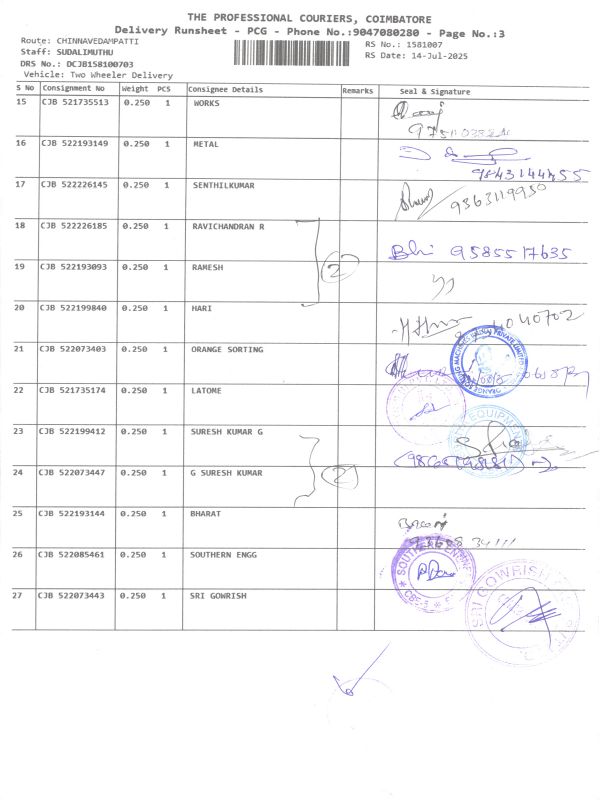 THE PROFESSIONAL COURIERS, COIMBATORE
Delivery Runsheet - PCG - Phone No.:9047080280 - Page No.:3
Route: CHINNAVEDAMPATTI
RS No.: 1581007
Staff: SUDALIMUTHU
RS Date: 14-Jul-2025
DRS No.: DCJB158100703
Vehicle: Two Wheeler Delivery
S No Consignment No Weight PCS Consignee Details Remarks Seal & Signature
15 CJB 521735513 0.250 1 WORKS
16 CJB 522193149 0.250 1 METAL
9843144455
17 CJB 522226145 0.250 1 SENTHILKUMAR
9363119950
18 CJB 522226185 0.250 1 RAVICHANDRAN R
2 Bhi 9585517635
19 CJB 522193093 0.250 1 RAMESH
20 CJB 522199840 0.250 1 HARI
4040702
21 CJB 522073403 0.250 1 ORANGE SORTING
22 CJB 521735174 0.250 1 LATOME
EQUIPMENT
23 CJB 522199412 0.250 1 SURESH KUMAR G
2
24 CJB 522073447 0.250 1 G SURESH KUMAR
25 CJB 522193144 0.250 1 BHARAT
26 CJB 522085461 0.250 1 SOUTHERN ENGG
SOUTHERN ENGINE
27 CJB 522073443 0.250 1 SRI GOWRISH
SRI GOWRISH